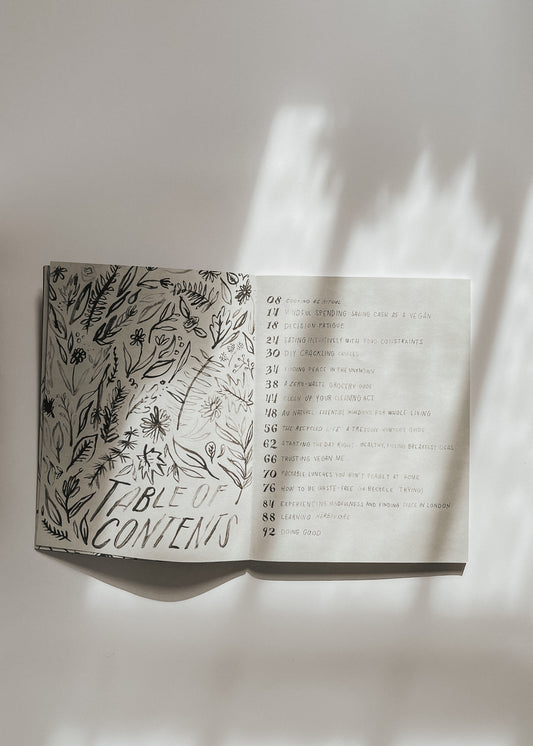 TABLE OF
CONTENTS
08 COOKING AS RITUAL
14 MINDFUL SPENDING SAVING CASH AS A VEGAN
18 DECISION FATIGUE
24 EATING INTUITIVELY WITH FOOD CONSTRAINTS
30 DIY CRACKLING CANDLES
34 FINDING PEACE IN THE UNKNOWN
38 A ZERO-WASTE GROCERY GUIDE
44 CLEAN UP YOUR CLEANING ACT
48 AU NATUREL ESSENTIAL READING FOR WHOLE LIVING
56 THE RECYCLED LIFE A TREASURE HUNTER'S GUIDE
62 STARTING THE DAY RIGHT HEALTHY, FILLING BREAKFAST IDEAS
66 TRUSTING VEGAN ME
70 PACKABLE LUNCHES YOU WON'T FORGET AT HOME
76 HOW TO BE WASTE-FREE (OR TRYING)
84 EXPERIENCING MINDFULNESS AND FINDING IN LONDON
88 LEARNING
92 DOING GOOD